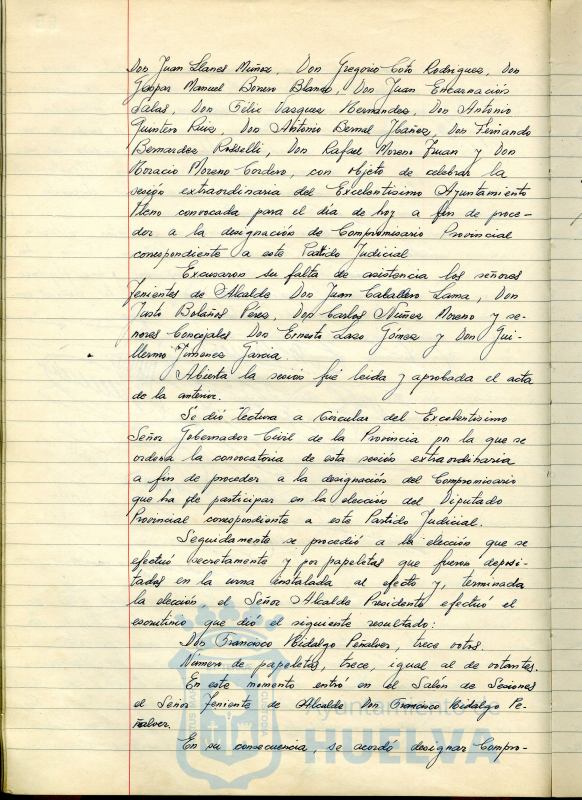 Don Juan Llanes Muñoz, Don Gregorio Coto Rodriguez, Don
Gaspar Manuel Bonero Blanco, Don Juan Encarnación
Salas, Don Félix Vazquez Hernandez, Don Antonio
Quintero Ruiz, Don Antonio Bernal Ibañez, Don Fernando
Bernardez Rosselli, Don Rafael Moreno Juan y Don
Horacio Moreno Cordero, con objeto de celebrar la
sesión extraordinaria del Excelentísimo Ayuntamiento
Pleno convocada para el día de hoy a fin de proce-
der a la designación de Compromisario Provincial
correspondiente a este Partido Judicial
Excusaron su falta de asistencia los señores
Tenientes de Alcalde Don Juan Caballero Lama, Don
Justo Bolaños Pérez, Don Carlos Nuñez Moreno y se-
ñores Concejales Don Ernesto Lazo Gómez y Don Gui-
llermo Jimenez Garcia.
Abierta la sesión fué leída y aprobada el acta
de la anterior.
Se dió lectura a Circular del Excelentísimo
Señor Gobernador Civil de la Provincia por la que se
ordena la convocatoria de esta sesión extraordinaria
a fin de proceder a la designación del Compromisario
que ha de participar en la elección del Diputado
Provincial correspondiente a este Partido Judicial.
Seguidamente se procedió a la elección que se
efectuó secretamente y por papeletas que fueron deposi-
tadas en la urna instalada al efecto y, terminada
la elección el Señor Alcalde Presidente efectuó el
escrutinio que dió el siguiente resultado:
Don Francisco Hidalgo Peñalver, trece votos.
Número de papeletas, trece, igual al de votantes.
En este momento entró en el Salón de Sesiones
el Señor Teniente de Alcalde Don Francisco Hidalgo Pe-
ñalver.
En su consecuencia, se acordó designar Compro-
Ayuntamiento de
HUELVA